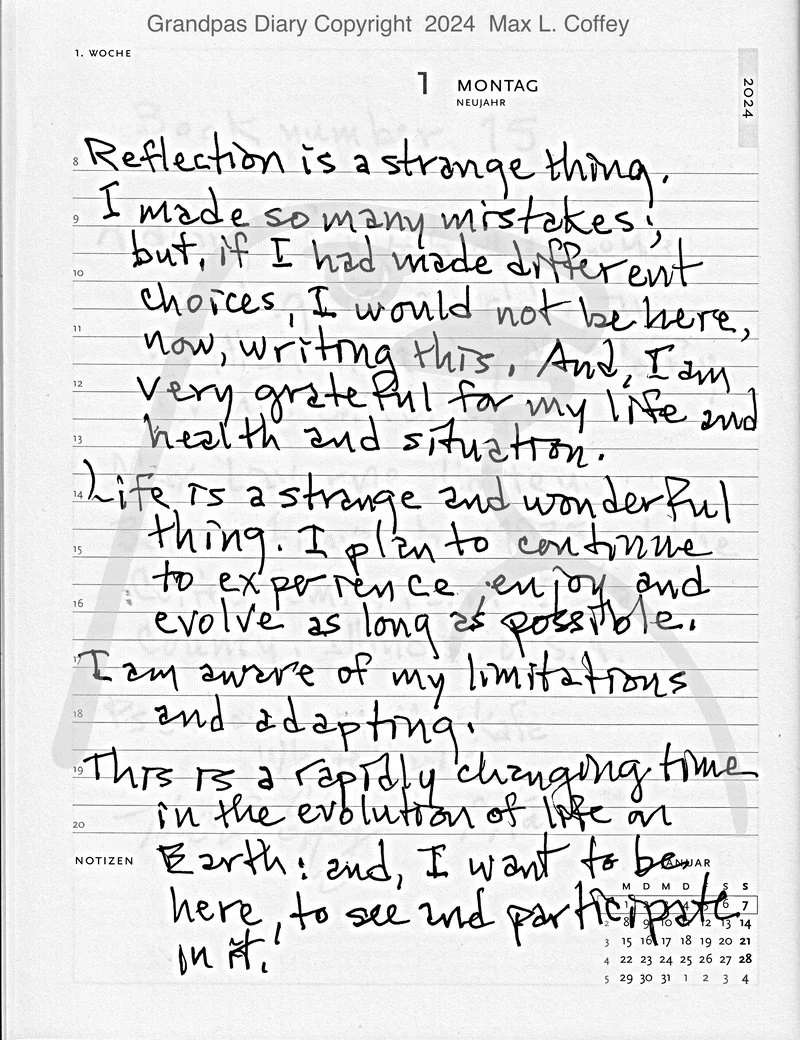 Grandpas Diary Copyright 2024 Max L. Coffey
1. WOCHE
1 MONTAG
NEUJAHR
2024
8 Reflection is a strange thing.
9 I made so many mistakes;
but, if I had made different
10 choices, I would not be here,
11 now, writing this. And, I am
12 very grateful for my life and
13 health and situation.
14 Life is a strange and wonderful
thing. I plan to continue
15 to experience, enjoy and
16 evolve as long as possible.
17 I am aware of my limitations
18 and adapting.
19 This is a rapidly changing time
in the evolution of life on
20
NOTIZEN Earth: and, I want to be
here, to see and participate
in it.
JANUAR
M D M D F S S
1 1 2 3 4 5 6 7
2 8 9 10 11 12 13 14
3 15 16 17 18 19 20 21
4 22 23 24 25 26 27 28
5 29 30 31 1 2 3 4